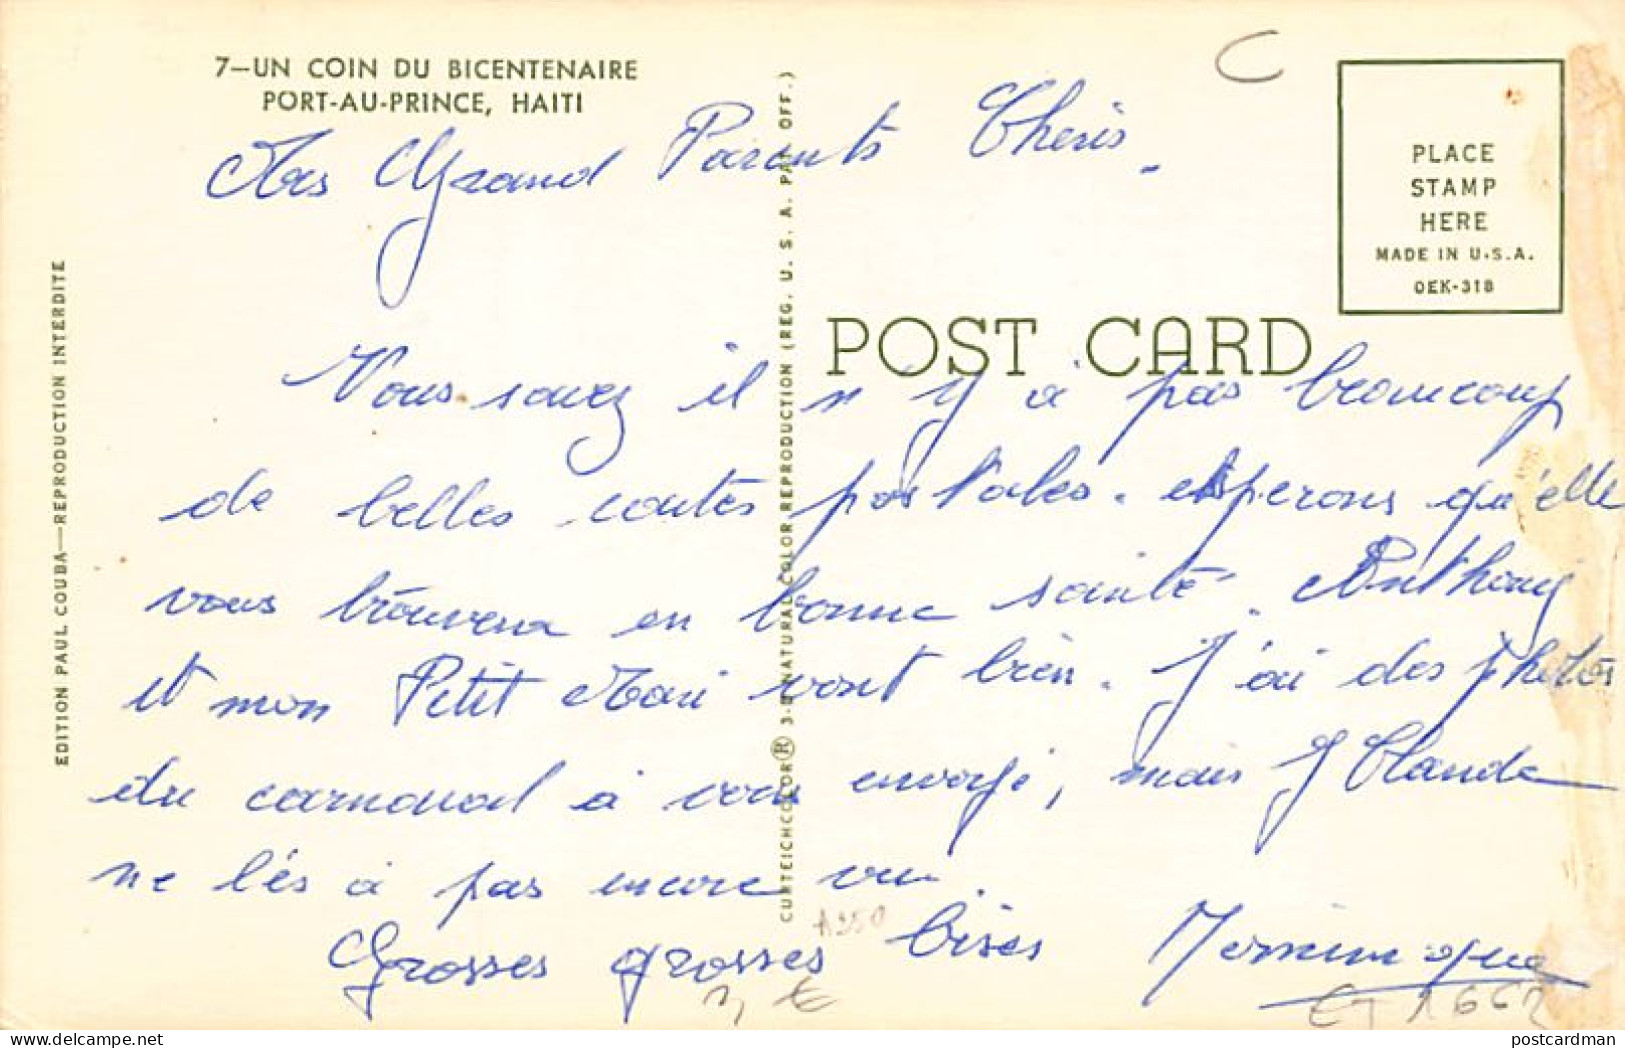 7—UN COIN DU BICENTENAIRE
PORT-AU-PRINCE, HAITI
EDITION PAUL COUBA—REPRODUCTION INTERDITE
CURTEICHCOLOR® 3-D NATURAL COLOR REPRODUCTION (REG. U. S. A. PAT. OFF.)
POST CARD
PLACE
STAMP
HERE
MADE IN U.S.A.
OEK-318
C
Mes Grand Parents Cheris.
Vous savez il n'y à pas beaucoup
de belles cartes postales. Esperons qu'elle
vous trouvera en bonne santé. Anthony
et mon Petit Mari vont bien. J'ai des photos
du carnaval à vous envoyé, mais J Claude
ne lés à pas encore vu.
Grosses grosses bises
A250
postcardman